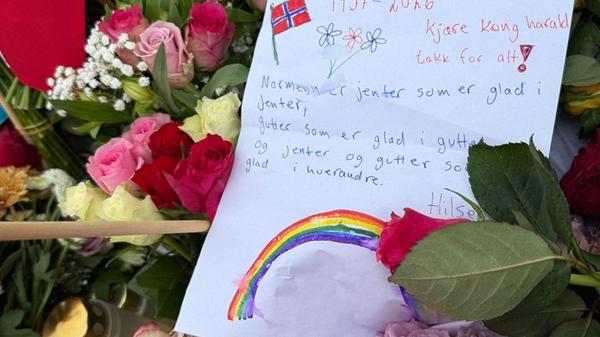 1937-2026
kjære kong harald
takk for alt!
Normenn er jenter som er glad i
jenter,
gutter som er glad i gutte
og jenter og gutter so
glad i hverandre.
Hilse